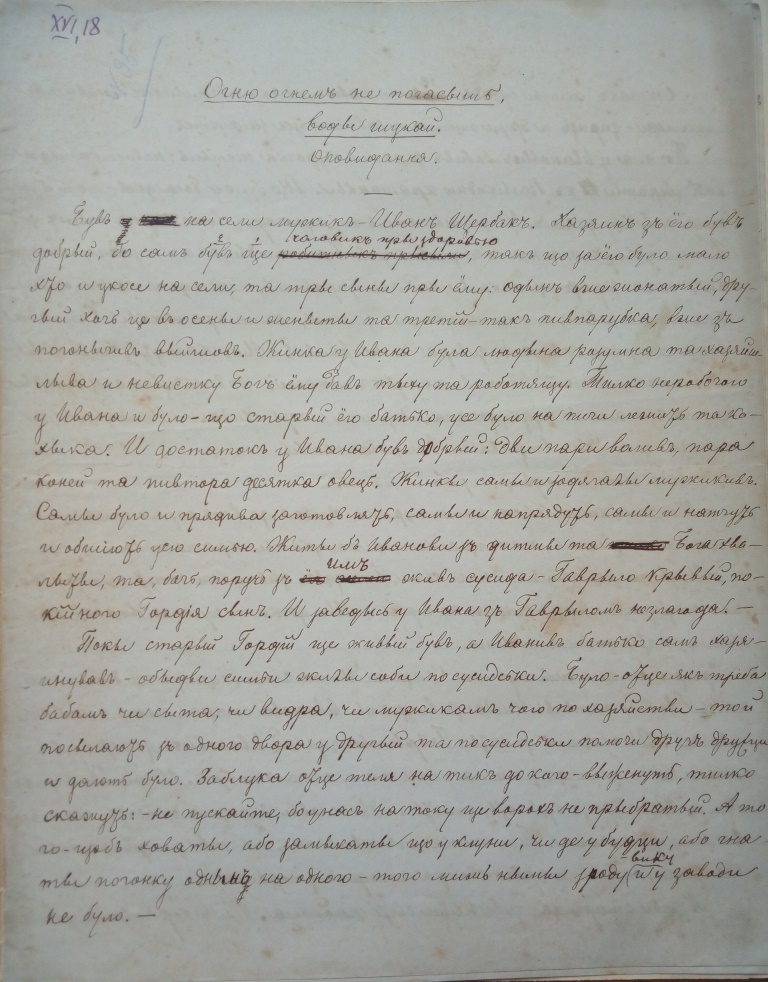 XVI, 18
Огню огнемъ не погасышъ,
водвы шукай.
Оповидання.
Бувъ на сели мужикъ - Иванъ Щербакъ. Хазяинъ зъ ёго бувъ
чаловикъ при здоровью
добрый, бо самъ бувъ ище, такъ що за ёго було мало
хто и укосе на сели, та трьи сыны при ёму: одынъ вже жонатый, дру-
гый хочъ це въ осены и женыты та третій - такъ пивпарубка, вже зъ
погонычивъ выйшовъ. Жинка у Ивана була людына розумна та хазяйш-
лыва и невистку Богъ ёму давъ тыху та роботящу. Тилко неробочого
у Ивана и було - що старый ёго батько, усе було на печи лежить та ко-
хыка. И достатокъ у Ивана бувъ добрый: Дви пари воливъ, пара
коней та пивтора десятка овець. Жинкы самы и зодягалы мужикивъ.
Самы було и прядива заготовлять, самы и напрядуть, самы и наткуть
и обшіють усю симью. Житы бъ Иванови зъ дитьмы та Бога хва-
имъ
лыты, та, бачъ, поручъ зъ живъ сусида - Гаврыло Крывый, по-
кійного Гордія сынъ. И заведысь у Ивана зъ Гаврыломъ незлагода. -
Покы старый Гордій ще жывый бувъ, а Иванивъ батько самъ хазя-
инувавъ - обыдви симьи жилы соби по сусидськи. Було - оце якъ треба
бабамъ чи сыта, чи видра, чи мужикамъ чого по хазяйстви - той
посылають зъ одного двора у другый та по сусидськи помочи другъ другу
и дають було. Заблука оце теля на тикъ до кого - выженуть, тилко
скажуть: - не пускайте, бо у насъ на току ще ворохъ не прыбратый. А то
го - щобъ ховаты, або замыкаты що у клуни, чи де у будци, або гна-
-вику
ты погонку одынъ на одного - того мижъ нымы зроду и у заводи
не було. -